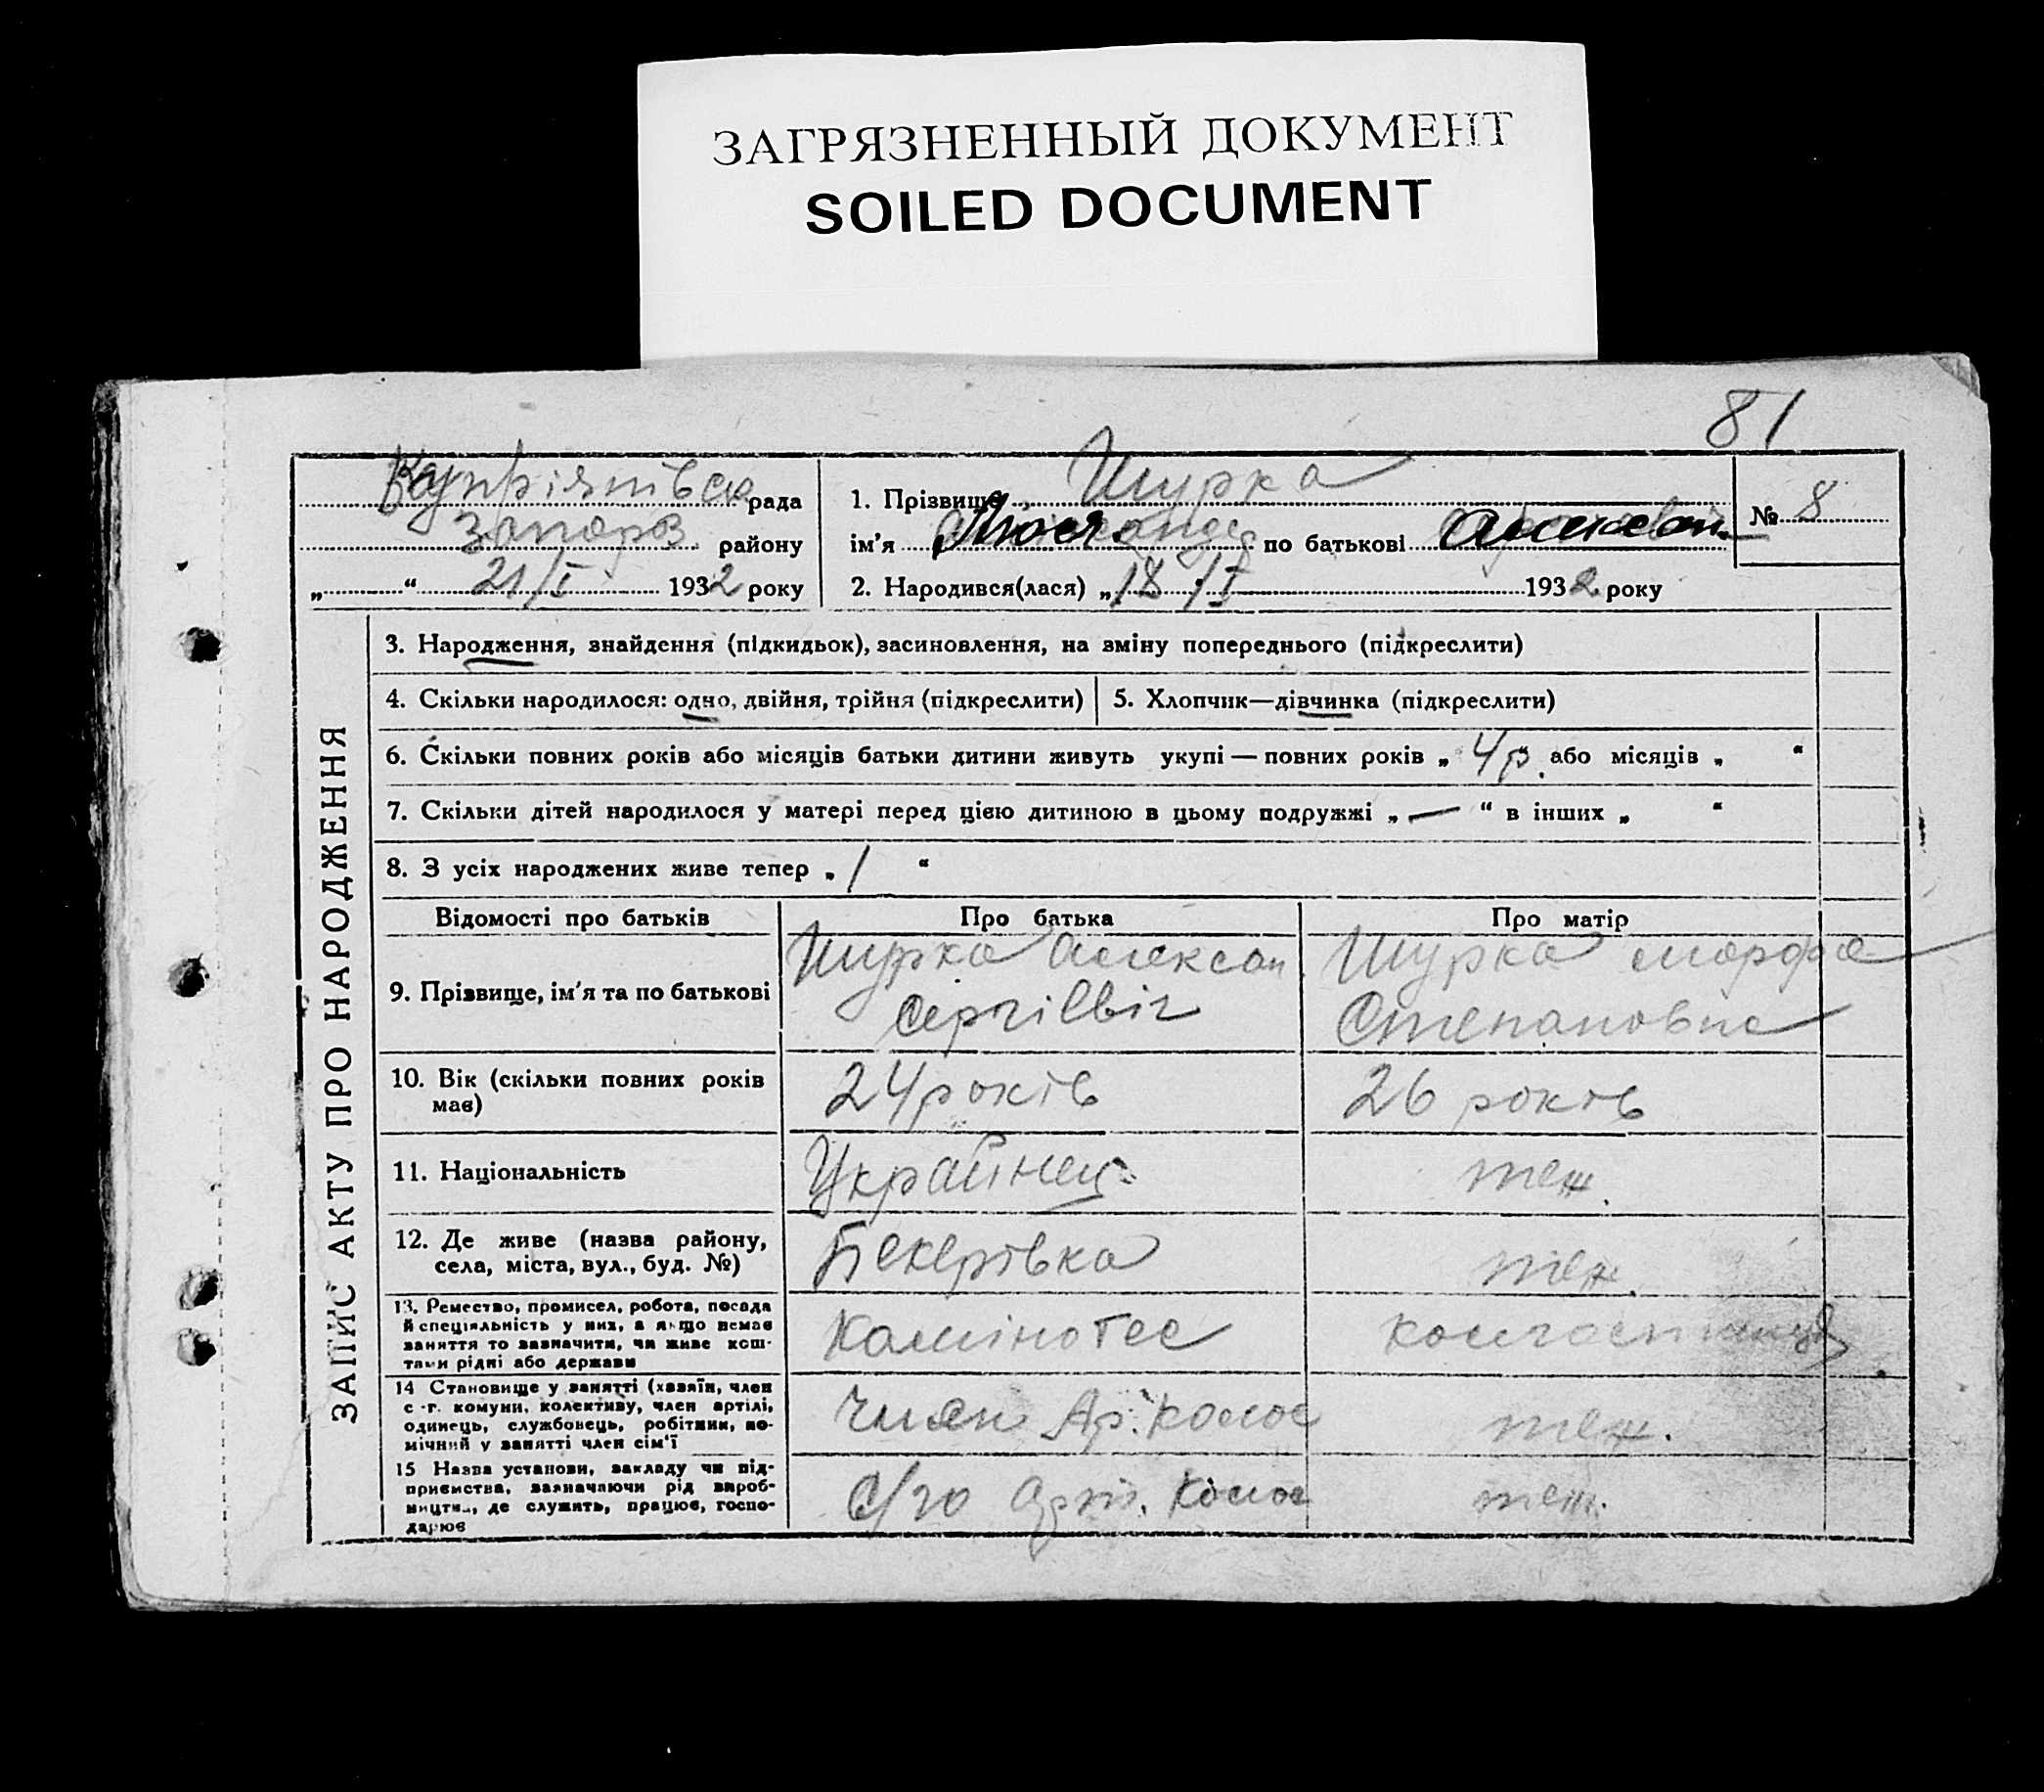 ЗАГРЯЗНЕННЫЙ ДОКУМЕНТ
SOILED DOCUMENT
81
рада
Запорз. району
„ “ 21/I 1932 року
1. Прізвище Шурка
ім'я по батькові
№ 8
2. Народився(лася) „18/I 1932 року
ЗАПИС АКТУ ПРО НАРОДЖЕННЯ
3. Народження, знайдення (підкидьок), засиновлення, на зміну попереднього (підкреслити)
4. Скільки народилося: одно, двійня, трійня (підкреслити)
5. Хлопчик—дівчинка (підкреслити)
6. Скільки повних років або місяців батьки дитини живуть укупі — повних років „ 4 р. або місяців „ “
7. Скільки дітей народилося у матері перед цією дитиною в цьому подружжі „ — “ в інших „ “
8. З усіх народжених живе тепер „ 1 “
Відомості про батьків Про батька Про матір
9. Прізвище, ім'я та по батькові
Шурка Алексан
Сергіевіч
Шурка Марфа
Степановна
10. Вік (скільки повних років
має)
24 років
26 років
11. Національність
Украйнец
теж.
12. Де живе (назва району,
села, міста, вул., буд. №)
Бекерівка
теж.
13. Ремество, промисел, робота, посада
й спеціяльність у них, а якщо немає
заняття то зазначити, чи живе кош-
тами рідні або держави
Камінотес
14 Становище у занятті (хазяїн, член
с.-г. комуни, колективу, член артілі,
одинець, службовець, робітник, по-
мічний у занятті член сім'ї
Член Ар. Колос
теж.
15 Назва установи, закладу чи під-
приємства, зазначаючи рід вироб-
ництва, де служить, працює, госпо-
дарює
С/го Арт. Колос
теж.